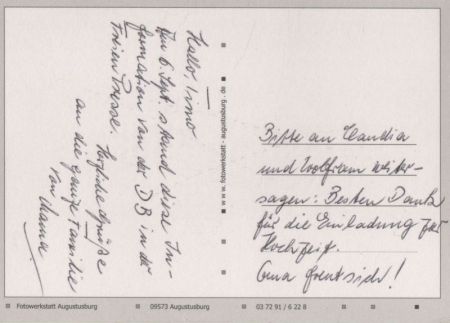 Hallo, Timo
Am 6. Sept. stand diese In-
formation von der DB in der
Freien Presse.
Herzliche Grüße
an die ganze Familie
von Mama
www.fotowerkstatt-augustusburg.de
Bitte an Claudia
und Wolfram weiter-
sagen: Besten Dank
für die Einladung zur
Hochzeit.
Oma freut sich!
Fotowerkstatt Augustusburg
09573 Augustusburg
03 72 91 / 6 22 8